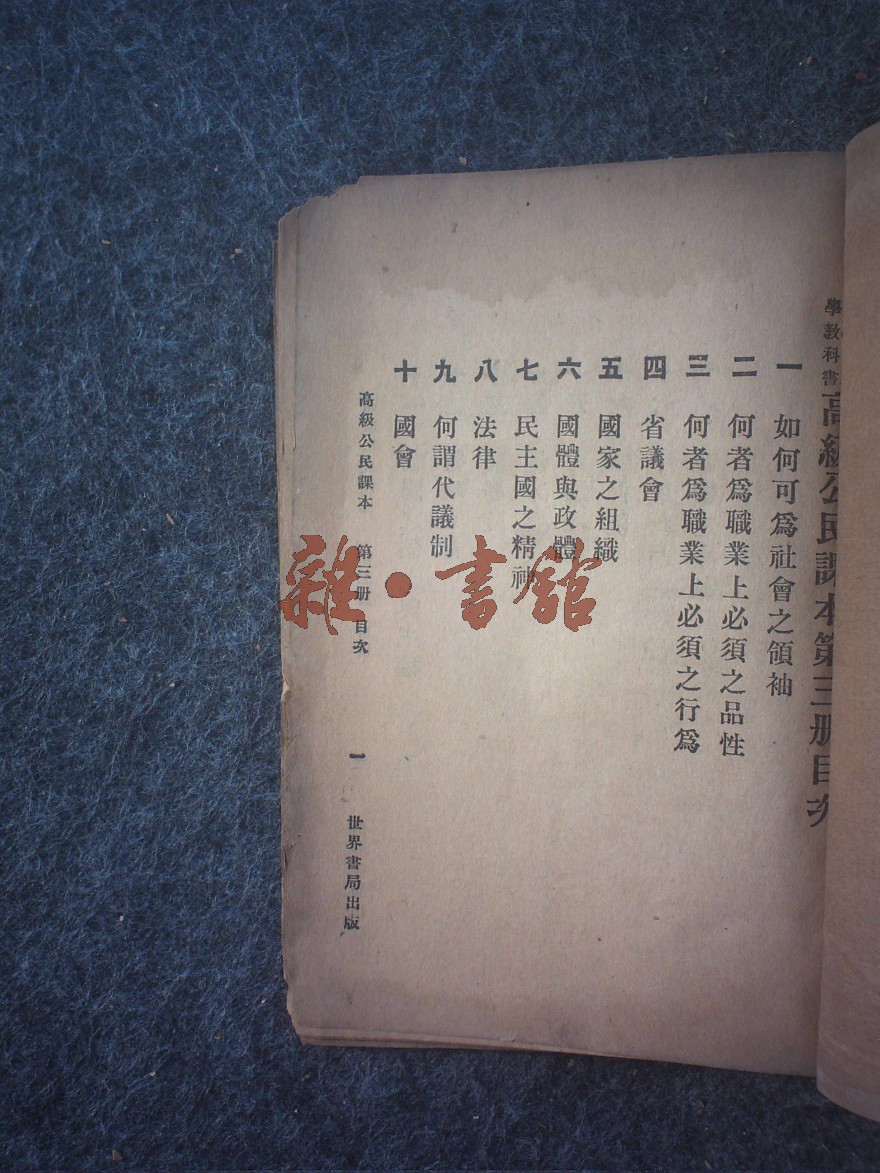 學教科書
高級公民課本第三册目次
一 如何可爲社會之領袖
二 何者爲職業上必須之品性
三 何者爲職業上必須之行爲
四 省議會
五 國家之組織
六 國體與政體
七 民主國之精神
八 法律
九 何謂代議制
十 國會
高級公民課本 第三册 目次 一 世界書局出版
雜·書館